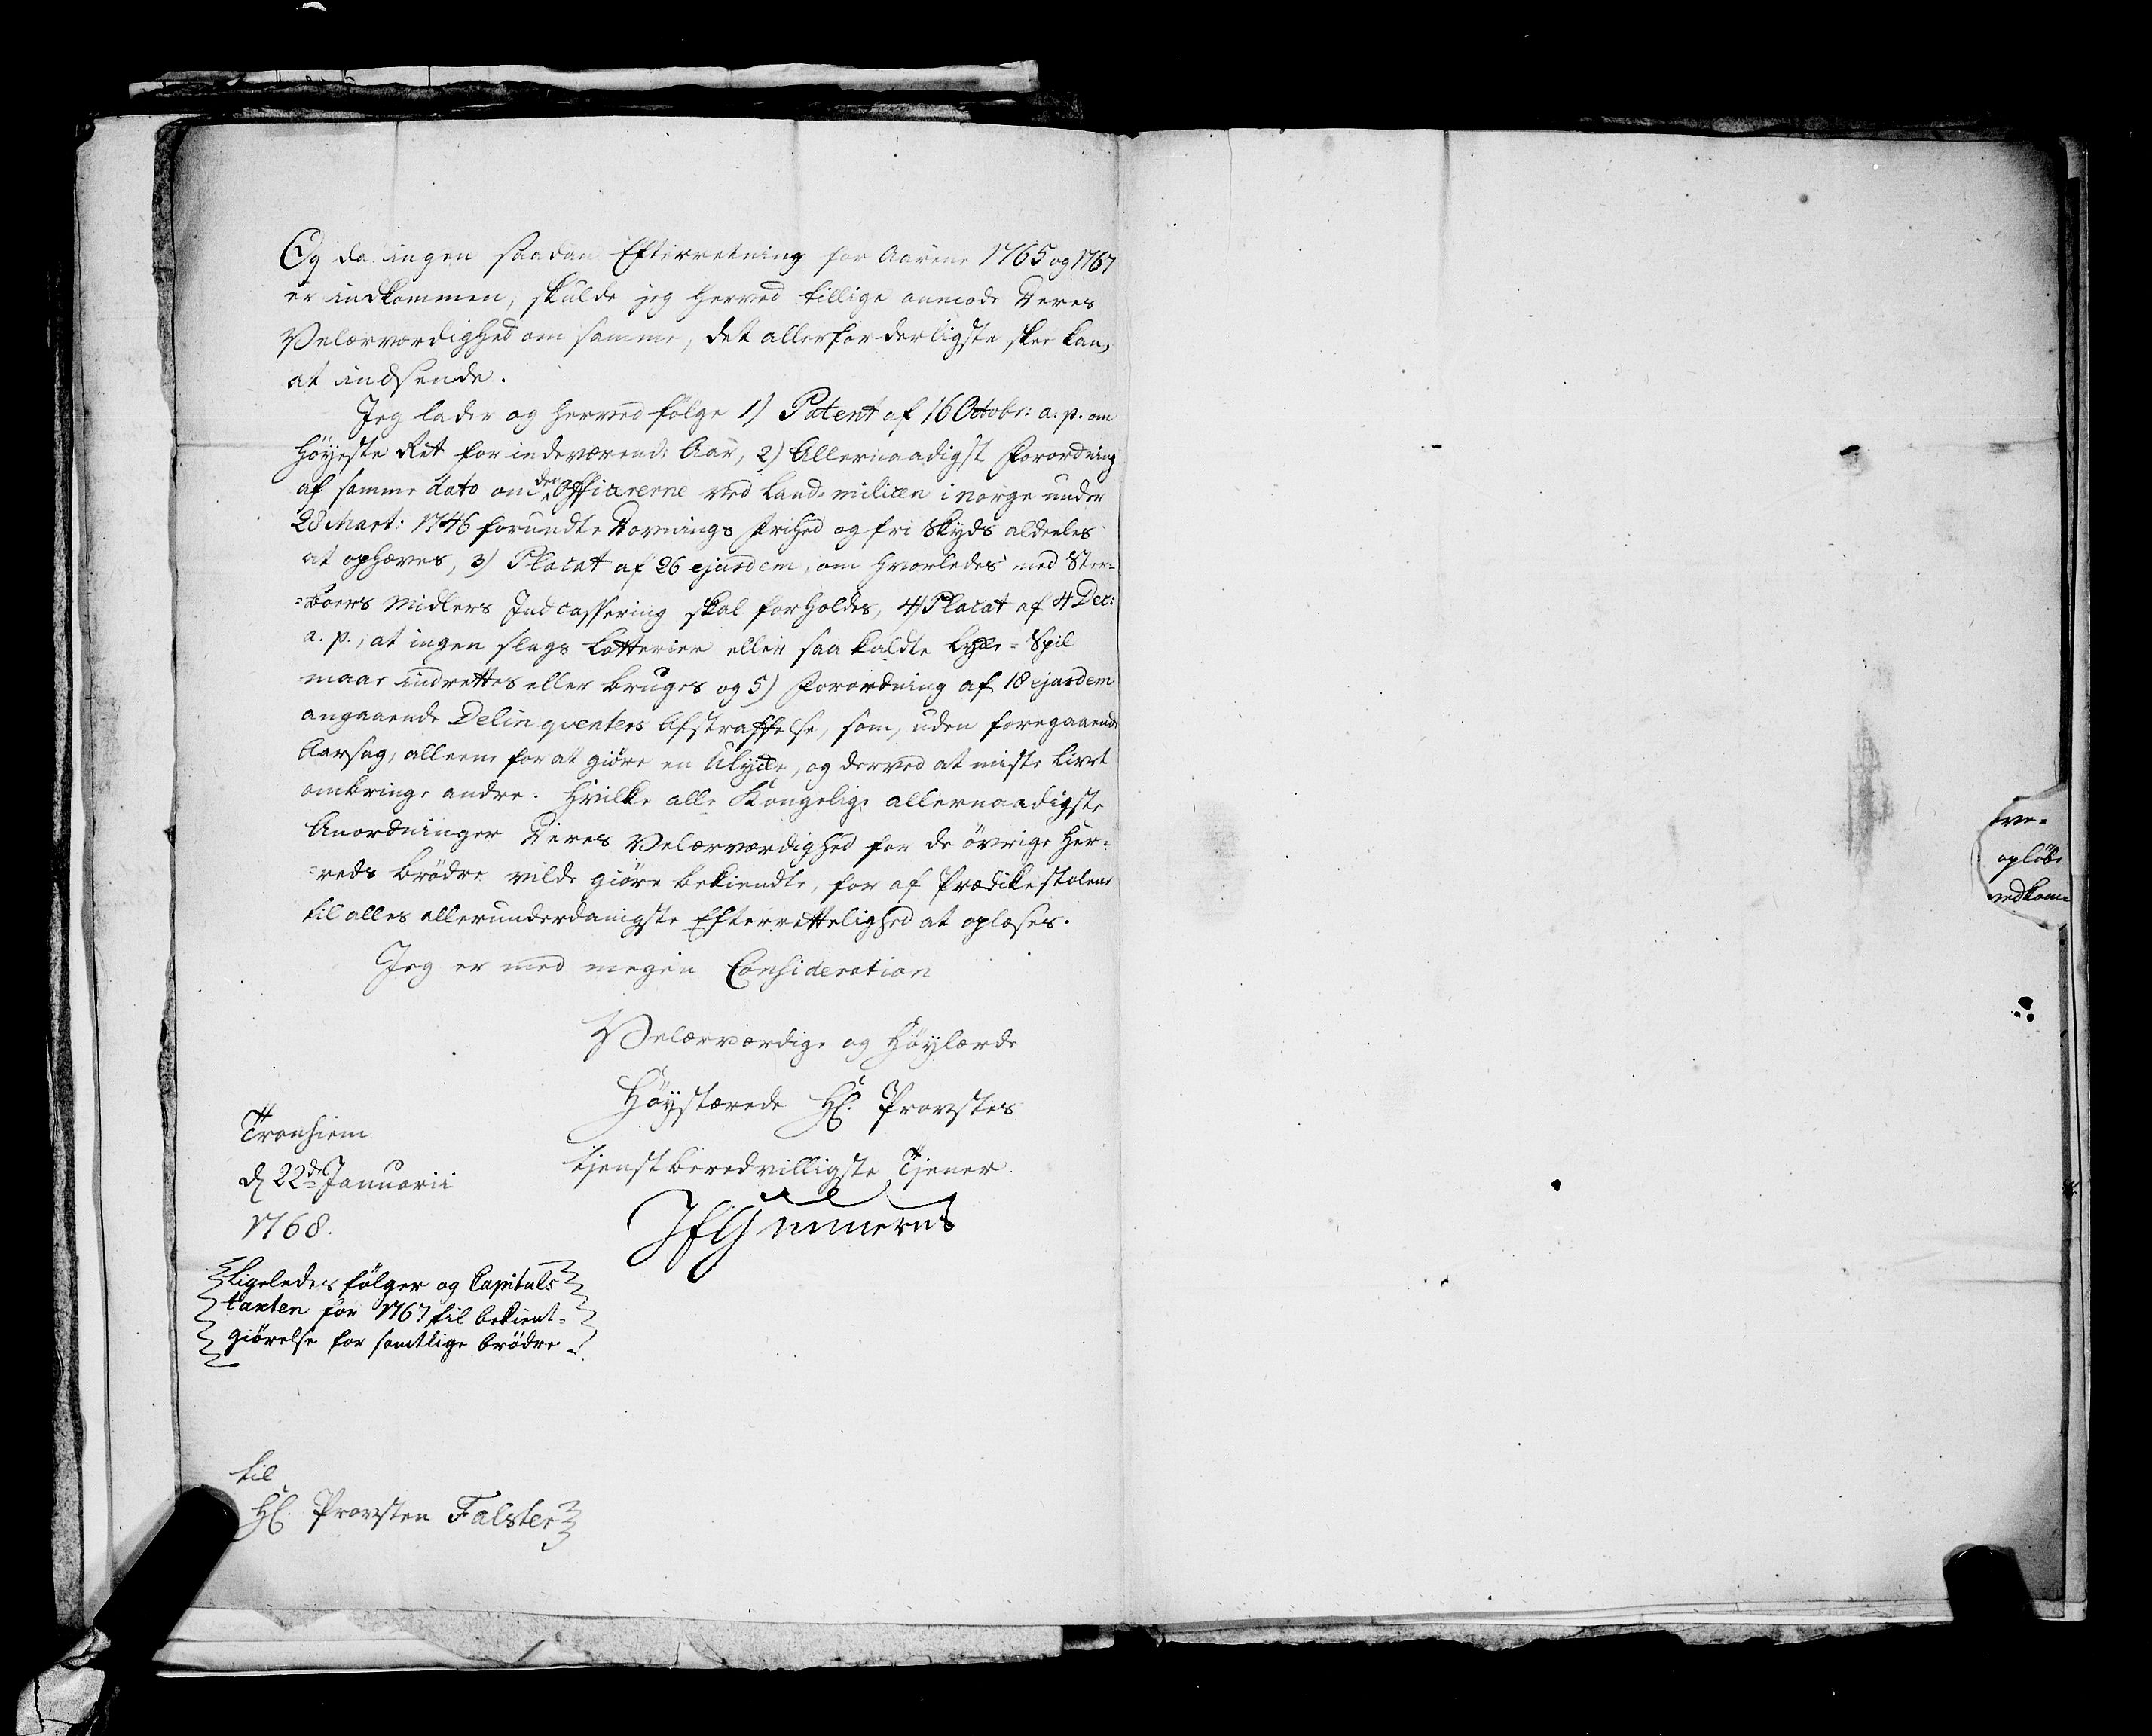 Og da ingen saadan Efterretning for Aarene 1765 og 1767
er indkommen, skulde jeg herved tillige anmode Deres
Velærværdighed om samme, det allerforderligste skee kan,
at indsende.
Jeg lader og herved følge 1) Patent af 16 Octobr: a. p. om
Høyeste Ret for indeværende Aar, 2) Allernaadigst Forordning
af samme dato om den Officererne ved Land-militien i Norge under
28 Mart: 1746 forundte Dovnings Frihed og fri Skyds aldeeles
at ophæves, 3) Placat af 26 ejusdem, om hvorledes med Ster-
=boers Midlers Indcassering skal forholdes, 4) Placat af 4 Dec:
a. p., at ingen slags Lotterier eller saa kaldte Lykke-Spil
maae indrettes eller bruges og 5) Forordning af 18 ejusdem
angaaende Delinqventers Afstraffelse, som, uden foregaaende
Aarsag, alleene for at giøre en Ulykke, og derved at miste Livet
ombringe andre. Hvilke alle Kongelige allernaadigste
Anordninger Deres Velærværdighed for de øvrige Her=
=reds Brødre vilde giøre bekiendte, for af Prædikestolene
til alles allerunderdanigste Efterrettelighed at oplæses.
Jeg er med megen Consideration
Velærværdige og Høylærde
Høystærede Hr. Provstes
tienstberedvilligste Tjener
JEGunnerus
Tronhiem
d 22de Januarii
1768.
Ligeledes følger og Capituls
taxten for 1767 til bekient-
giørelse for samtlige brødre
til
Hr. Provsten Falster
tve=
opløbe
vedkom